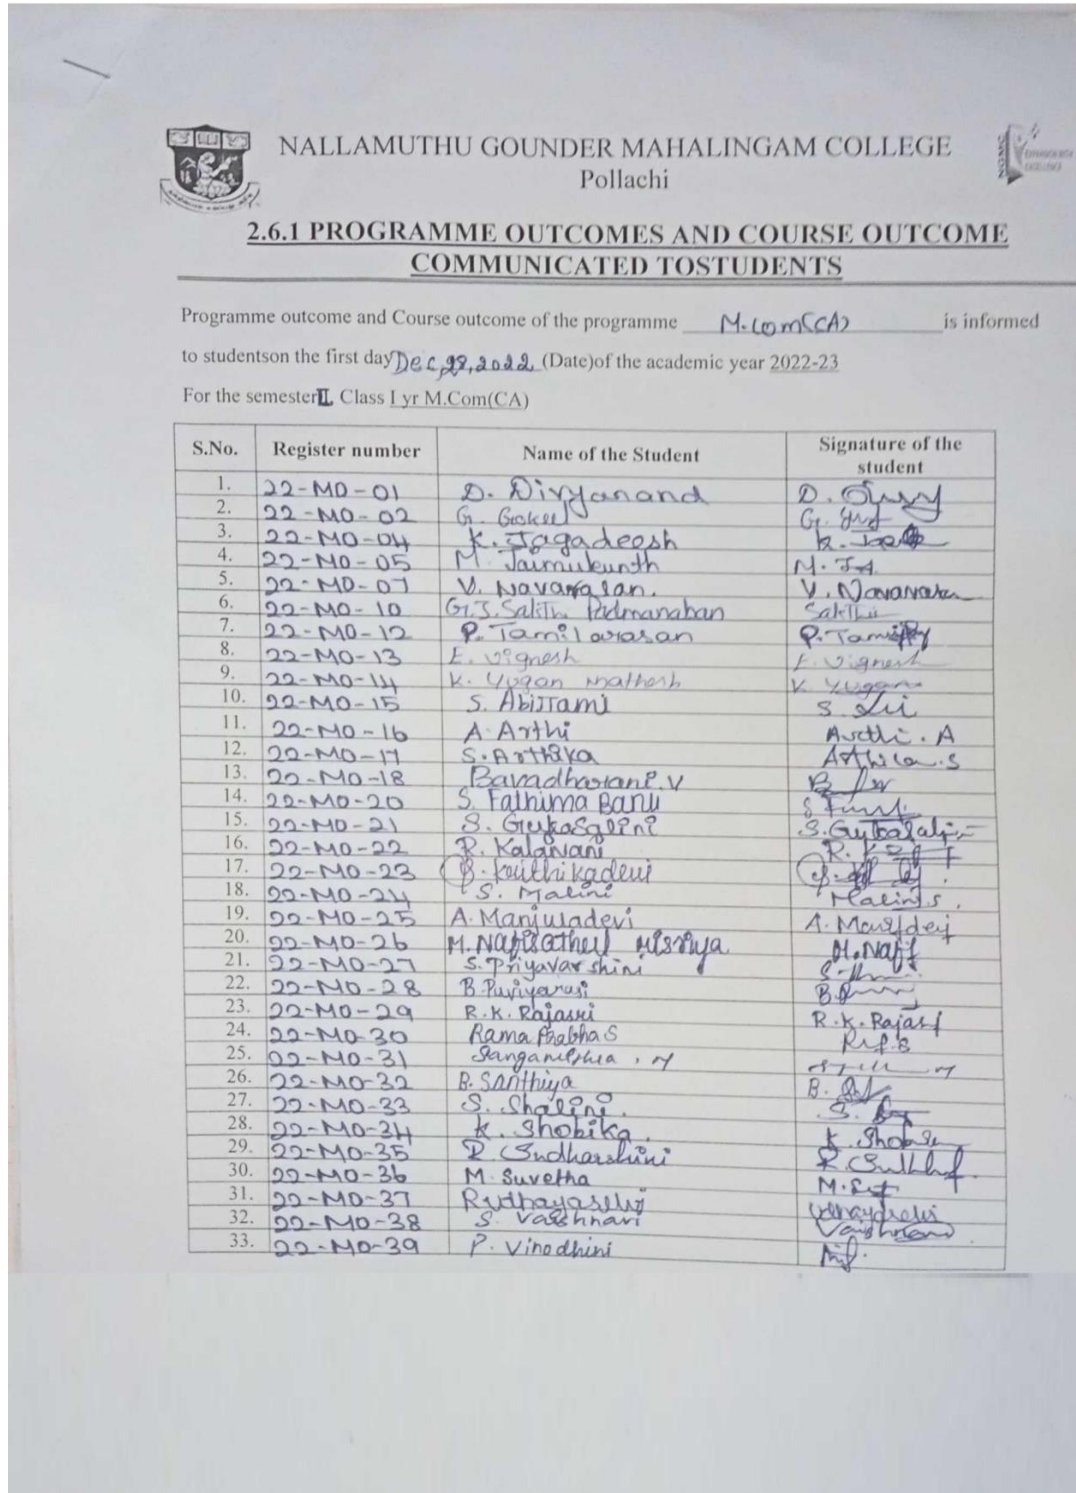 NALLAMUTHU GOUNDER MAHALINGAM COLLEGE
Pollachi
2.6.1 PROGRAMME OUTCOMES AND COURSE OUTCOME
COMMUNICATED TOSTUDENTS
Programme outcome and Course outcome of the programme M.Com(CA) is informed
to studentson the first day Dec 28, 2022 (Date)of the academic year 2022-23
For the semester II, Class I yr M.Com(CA)
S.No. Register number Name of the Student Signature of the student
1. 22-MO-01 D. Divyanand D.
2. 22-MO-02 G. Gokul G.
3. 22-MO-04 K. Jagadeesh K.
4. 22-MO-05 M. Jaimukunth M. JA
5. 22-MO-07 V. Navanalan. V. Navanalan
6. 22-MO-10 G.J. Salith Padmanaban
7. 22-MO-12 P. Tamilarasan P.
8. 22-MO-13 E. Vignesh E. Vignesh
9. 22-MO-14 K. Yugan Mathesh K. Yugan
10. 22-MO-15 S. Abirrami S.
11. 22-MO-16 A. Arthi Arthi. A
12. 22-MO-17 S. Arthika Arthika. S
13. 22-MO-18 Bavadharani. V
14. 22-MO-20 S. Fathima Banu S
15. 22-MO-21 S. Gukasalini S.
16. 22-MO-22 R. Kalaivani R.
17. 22-MO-23 Keerthikadevi
18. 22-MO-24 S. Malini Malini.S.
19. 22-MO-25 A. Manjuladevi A.
20. 22-MO-26 M. Nafisathul Misriya M. Naf
21. 22-MO-27 S. Priyavarshini S.
22. 22-MO-28 B. Puviyarasi B.
23. 22-MO-29 R.K. Rajasri R.K. Rajasri
24. 22-MO-30 Rama Prabha S
25. 22-MO-31
26. 22-MO-32 B. Santhiya B.
27. 22-MO-33 S. Shalini. S.
28. 22-MO-34 K. Shobika. K. Shobika
29. 22-MO-35 R. Sudharshini R.
30. 22-MO-36 M. Suvetha M.
31. 22-MO-37 R. Udhayaselvi Udhayaselvi
32. 22-MO-38 S. Vaishnavi Vaishnavi
33. 22-MO-39 P. Vinodhini